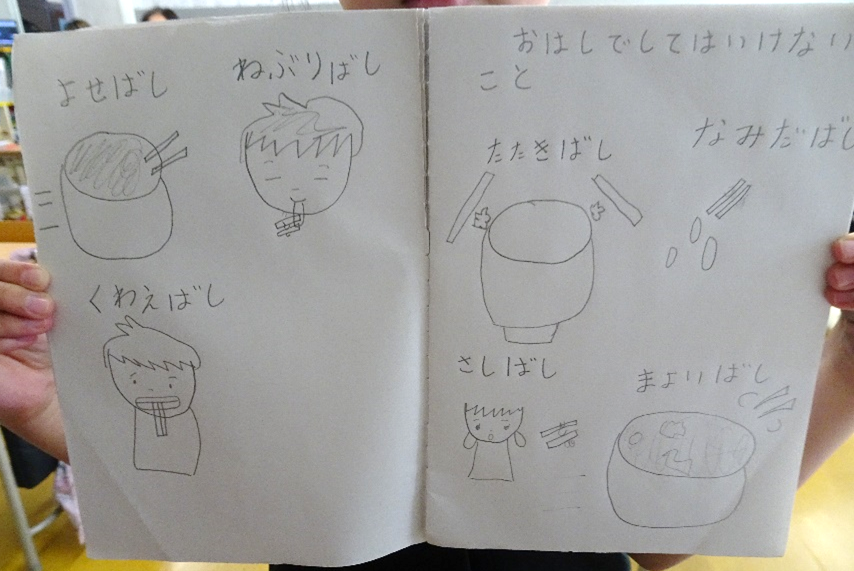 おはしでしてはいけない
こと
たたきばし
なみだばし
さしばし
まよいばし
よせばし
ねぶりばし
くわえばし